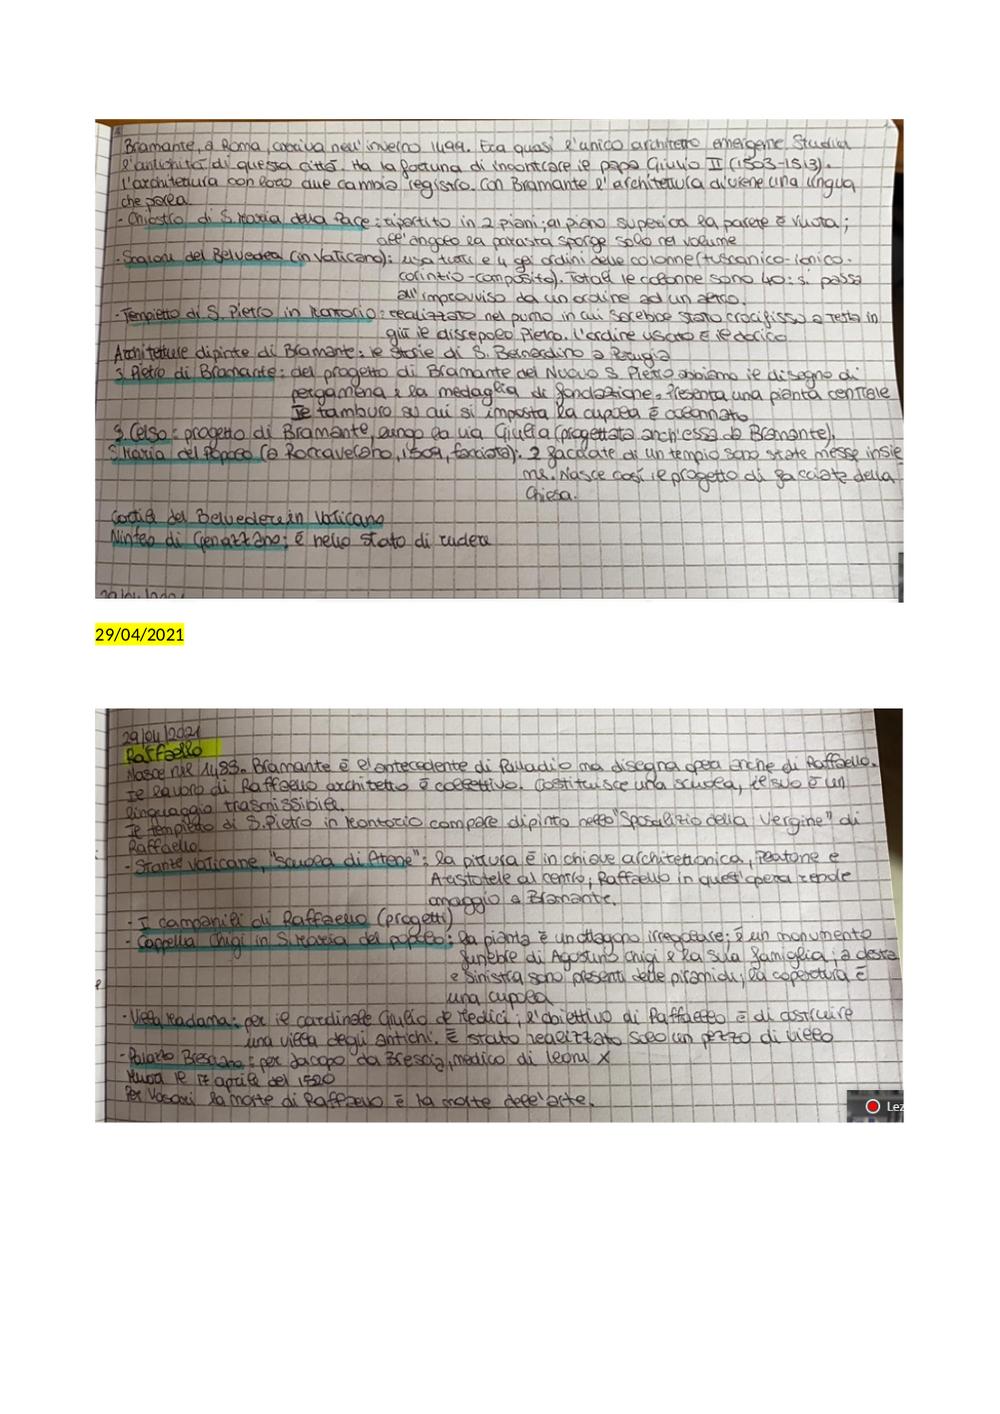 Bramante, a Roma, arriva nell'inverno 1499. Era quasi l'unico architetto emergente. Studia
l'antichità di questa città. Ha la fortuna di incontrare il papa Giulio II (1503-1513).
L'architettura con loro due cambia registro. Con Bramante l'architettura diviene una lingua
che parla.
- Chiostro di S. Maria della Pace: ripartito in 2 piani; al piano superiore la parete è vuota;
all'angolo la parasta sporge solo nel volume
- Scaloni del Belvedere (in Vaticano): usa tutti e 4 gli ordini delle colonne (tuscanico-ionico-
corinzio-composito). Totali le colonne sono 40: si passa
all'improvviso da un ordine ad un altro.
- Tempietto di S. Pietro in Montorio: realizzato nel punto in cui sarebbe stato crocifisso a testa in
giù il discepolo Pietro. L'ordine usato è il dorico
Architetture dipinte di Bramante: le storie di S. Bernardino a Perugia
S. Pietro di Bramante: del progetto di Bramante del Nuovo S. Pietro abbiamo il disegno di
pergamena e la medaglia di fondazione. Presenta una pianta centrale
Il tamburo su cui si imposta la cupola è colonnato
S. Celso: progetto di Bramante, lungo la via Giulia (progettata anch'essa da Bramante).
S. Maria del Popolo (a Roccaverano, 1509, facciata): 2 facciate di un tempio sono state messe insie
me. Nasce così il progetto di facciate della
Chiesa.
Cortile del Belvedere in Vaticano
Ninfeo di Genazzano: è nello stato di rudere
29/04/2021
29/04/2021
Raffaello
Nasce nel 1483. Bramante è l'antecedente di Palladio ma disegna opera anche di Raffaello.
Il lavoro di Raffaello architetto è collettivo. Costituisce una scuola, il suo è un
linguaggio trasmissibile.
Il tempietto di S. Pietro in Montorio compare dipinto nello "Sposalizio della Vergine" di
Raffaello.
- Stanze Vaticane, "Scuola di Atene": la pittura è in chiave architettonica, Platone e
Aristotele al centro; Raffaello in quest'opera rende
omaggio a Bramante.
- I campanili di Raffaello (progetti)
- Cappella Chigi in S. Maria del popolo: la pianta è un ottagono irregolare; è un monumento
funebre di Agostino Chigi e la sua famiglia; a destra
e sinistra sono presenti delle piramidi; la copertura è
una cupola
- Villa Madama: per il cardinale Giulio de Medici; l'obiettivo di Raffaello è di costruire
una villa degli antichi. È stato realizzato solo un pezzo di
- Palazzo Bresciano: per Jacopo da Brescia, medico di Leoni X
Muore il 17 aprile del 1520
Per Vasari la morte di Raffaello è la morte dell'arte.
Lez